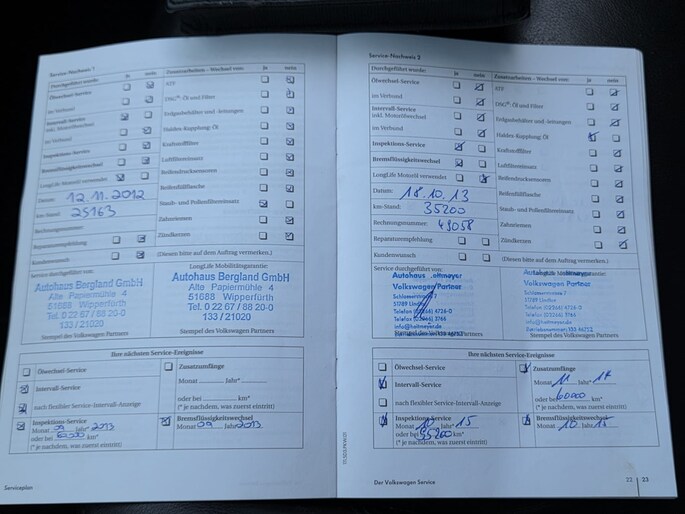 Service-Nachweis 1
Durchgeführt wurde: ja nein
Ölwechsel-Service
im Verbund
Intervall-Service
inkl. Motorölwechsel
im Verbund
Inspektions-Service
Bremsflüssigkeitswechsel
LongLife Motoröl verwendet
Datum: 12.11.2012
km-Stand: 25163
Rechnungsnummer:
Reparaturempfehlung
Kundenwunsch
Zusatzarbeiten – Wechsel von: ja nein
ATF
DSG®-Öl und Filter
Erdgasbehälter und -leitungen
Haldex-Kupplung Öl
Kraftstofffilter
Luftfiltereinsatz
Reifendrucksensoren
Reifenfüllflasche
Staub- und Pollenfiltereinsatz
Zahnriemen
Zündkerzen
(Diesen bitte auf dem Auftrag vermerken.)
Service durchgeführt von:
Autohaus Bergland GmbH
Alte Papiermühle 4
51688 Wipperfürth
Tel. 0 22 67 / 88 20-0
133 / 21020
Stempel des Volkswagen Partners
LongLife Mobilitätsgarantie:
Autohaus Bergland GmbH
Alte Papiermühle 4
51688 Wipperfürth
Tel. 0 22 67 / 88 20-0
133 / 21020
Stempel des Volkswagen Partners
Ihre nächsten Service-Ereignisse
Ölwechsel-Service
Intervall-Service
nach flexibler Service-Intervall-Anzeige
Inspektions-Service
Monat 09 Jahr* 2013
oder bei km*
(* je nachdem, was zuerst eintritt)
Zusatzumfänge
Monat Jahr*
oder bei km*
(* je nachdem, was zuerst eintritt)
Bremsflüssigkeitswechsel
Monat 09 Jahr 2013
Serviceplan
Service-Nachweis 2
Durchgeführt wurde: ja nein
Ölwechsel-Service
im Verbund
Intervall-Service
inkl. Motorölwechsel
im Verbund
Inspektions-Service
Bremsflüssigkeitswechsel
LongLife Motoröl verwendet
Datum: 18.10.13
km-Stand: 35200
Rechnungsnummer: 49058
Reparaturempfehlung
Kundenwunsch
Zusatzarbeiten – Wechsel von: ja nein
ATF
DSG®-Öl und Filter
Erdgasbehälter und -leitungen
Haldex-Kupplung Öl
Kraftstofffilter
Luftfiltereinsatz
Reifendrucksensoren
Reifenfüllflasche
Staub- und Pollenfiltereinsatz
Zahnriemen
Zündkerzen
(Diesen bitte auf dem Auftrag vermerken.)
Service durchgeführt von:
Autohaus
Volkswagen Partner
51789 Lindlar
Stempel des Volkswagen Partners
LongLife Mobilitätsgarantie:
Autohaus
Volkswagen Partner
51789 Lindlar
Stempel des Volkswagen Partners
Ihre nächsten Service-Ereignisse
Ölwechsel-Service
Intervall-Service
nach flexibler Service-Intervall-Anzeige
Inspektions-Service
Monat 10 Jahr* 15
oder bei 55200 km*
(* je nachdem, was zuerst eintritt)
Zusatzumfänge
Monat 11 Jahr*
oder bei 60000 km*
(* je nachdem, was zuerst eintritt)
Bremsflüssigkeitswechsel
Monat 10 Jahr 15
Der Volkswagen Service
22 23